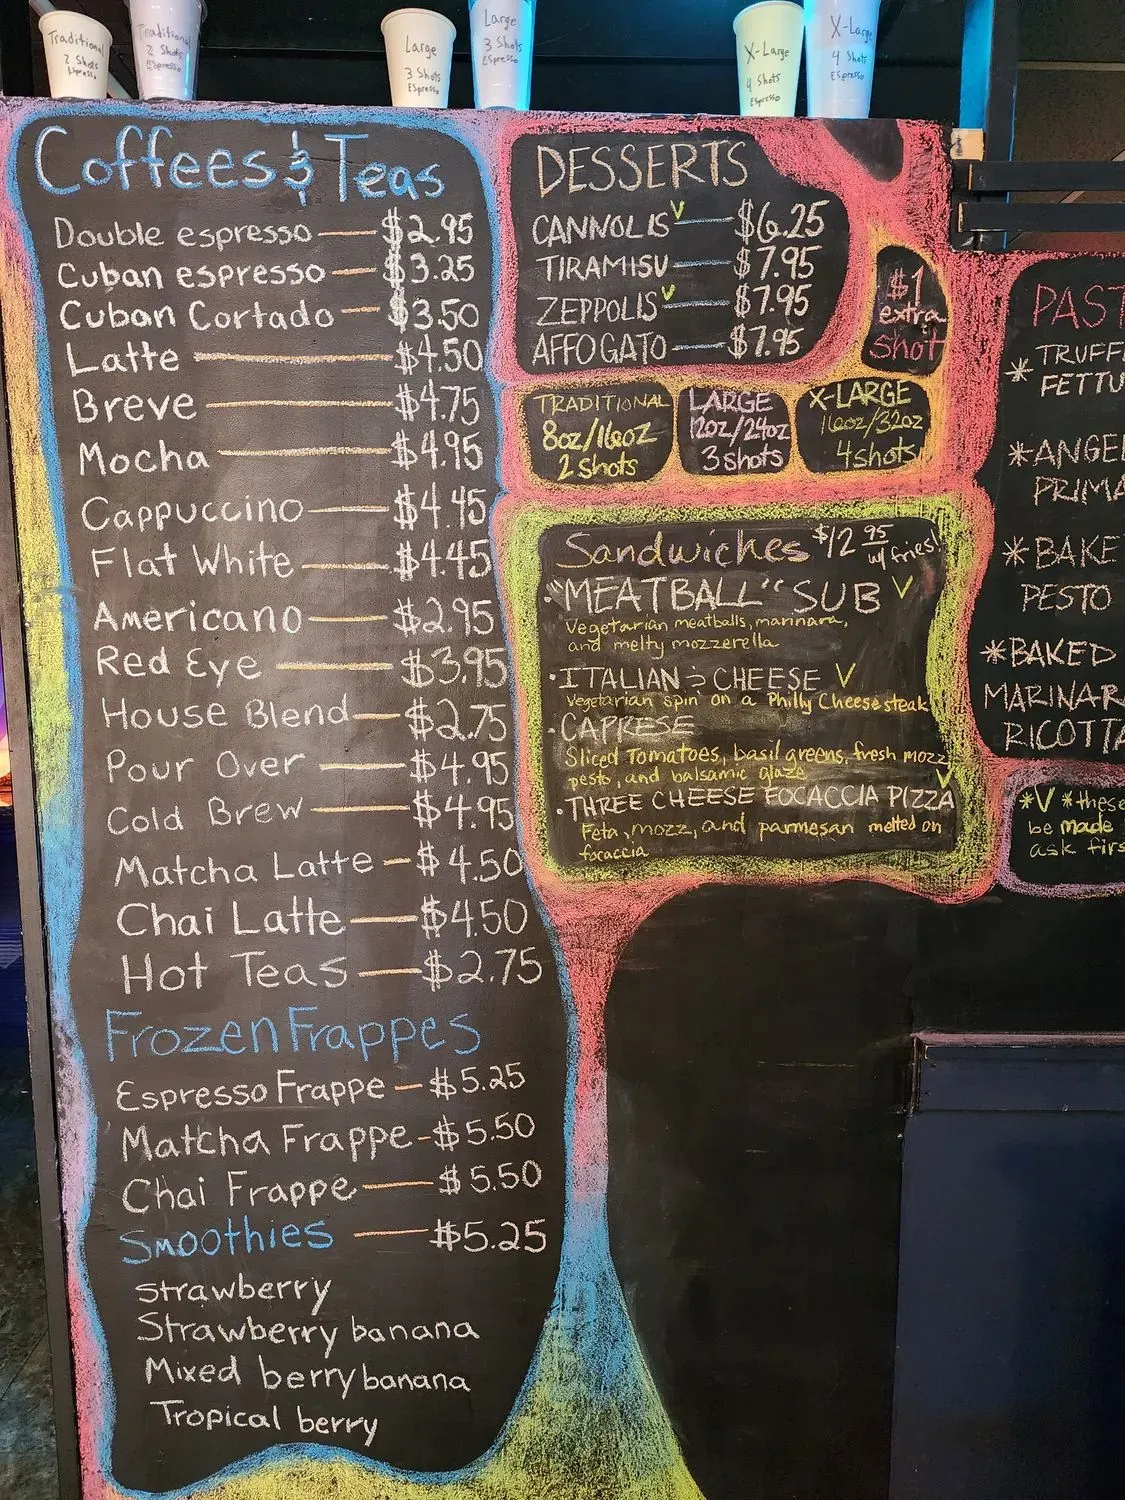 Traditional
2 Shots
Espresso
Traditional
2 Shots
Espresso
Large
3 Shots
Espresso
Large
3 Shots
Espresso
X-Large
4 Shots
Espresso
X-Large
4 Shots
Espresso
Coffees & Teas
Double espresso — $2.95
Cuban espresso — $3.25
Cuban Cortado — $3.50
Latte — $4.50
Breve — $4.75
Mocha — $4.95
Cappuccino — $4.45
Flat White — $4.45
Americano — $2.95
Red Eye — $3.95
House Blend — $2.75
Pour Over — $4.95
Cold Brew — $4.95
Matcha Latte — $4.50
Chai Latte — $4.50
Hot Teas — $2.75
Frozen Frappes
Espresso Frappe — $5.25
Matcha Frappe - $5.50
Chai Frappe — $5.50
Smoothies — $5.25
Strawberry
Strawberry banana
Mixed berry banana
Tropical berry
DESSERTS
CANNOLIS V — $6.25
TIRAMISU — $7.95
ZEPPOLIS V — $7.95
AFFOGATO — $7.95
$1
extra
shot
TRADITIONAL
8oz/16oz
2 shots
LARGE
12oz/24oz
3 shots
X-LARGE
16oz/32oz
4 shots
Sandwiches $12.95
w/ fries!
• "MEATBALL" SUB V
Vegetarian meatballs, marinara,
and melty mozzerella
• ITALIAN & CHEESE V
Vegetarian spin on a Philly Cheesesteak
• CAPRESE
Sliced Tomatoes, basil greens, fresh mozz,
pesto, and balsamic glaze
• THREE CHEESE FOCACCIA PIZZA V
Feta, mozz, and parmesan melted on
focaccia
PAST
* TRUFF
FETTU
* ANGE
PRIMA
* BAKE
PESTO
* BAKED
MARINAR
RICOTTA
*V* these
be made
ask firs